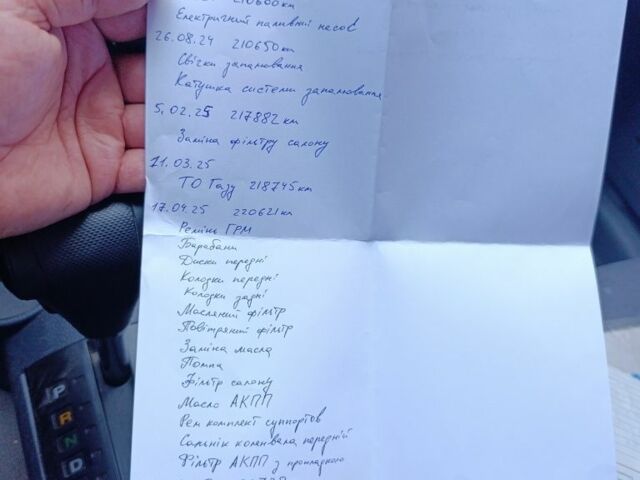 210600км
Електричний паливний насос
26.08.24 210650км
Свічки запалювання
Катушка системи запалювання.
5.02.25 217882км
Заміна фільтру салону
11.03.25
ТО Газу 218745км
17.04.25 220621км
Ремінь ГРМ
Барабани
Диски передні
Колодки передні
Колодки задні
Масляний фільтр
Повітряний фільтр
Заміна масла
Помпа
Фільтр салону
Масло АКПП
Рем комплект суппортов
Сальнік коленвала передній
Фільтр АКПП з прокладкою
P
R
N
D